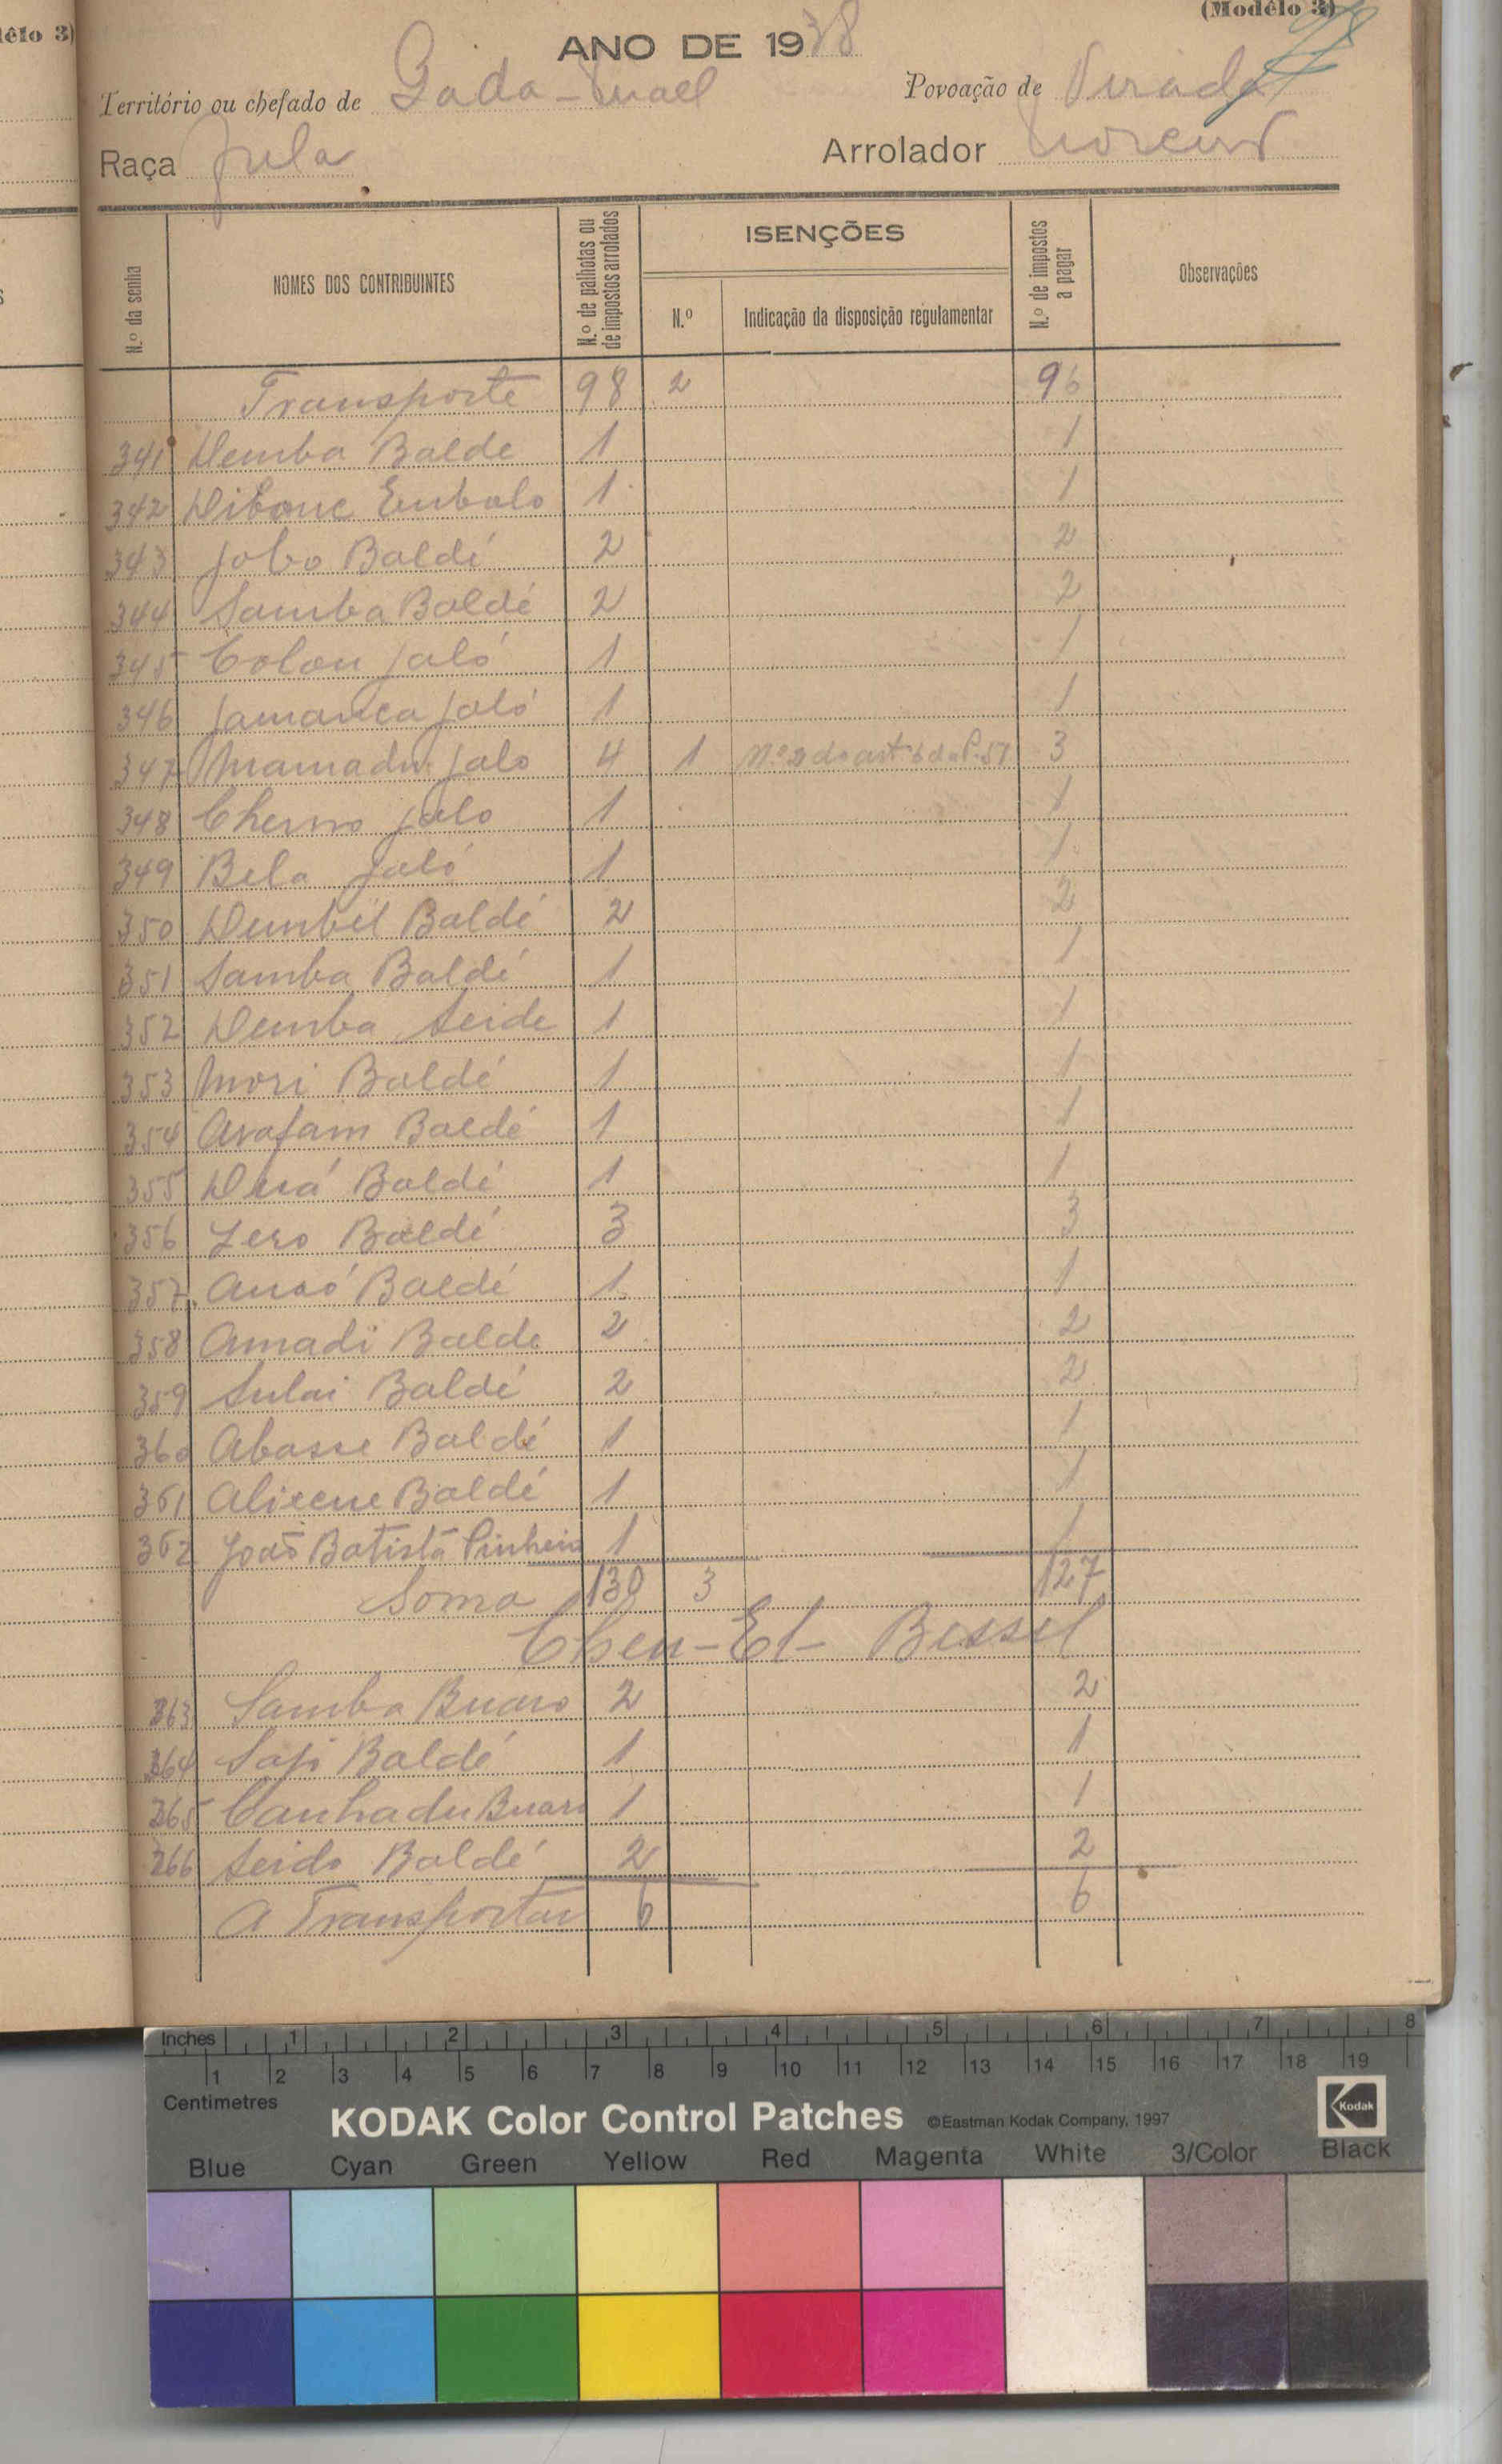 (Modêlo 3)
êlo 3)
ANO DE 1938
Território ou chefado de Gada-
Povoação de
Raça Fula
Arrolador
N.º da senha
NOMES DOS CONTRIBUINTES
N.º de palhotas ou de impostos arrolados
ISENÇÕES
N.º
Indicação da disposição regulamentar
N.º de impostos a pagar
Observações
Transporte 98 2 96
341 Demba Balde 1 1
342 Embalo 1 1
343 Jobo Baldé 2 2
344 Samba Baldé 2 2
345 Colou Jaló 1 1
346 Jamanca Jaló 1 1
347 Mamadu Jalo 4 1 N.º 2 do art.º 6 3
348 Cherno Jalo 1 1
349 Bela Jaló 1 1
350 Dembel Baldé 2 2
351 Samba Baldé 1 1
352 Demba Seide 1 1
353 Mori Baldé 1 1
354 Arafam Baldé 1 1
355 Baldé 1 1
356 Jero Baldé 3 3
357 Baldé 1 1
358 Amadi Balde 2 2
359 Sulai Baldé 2 2
360 Abasse Baldé 1 1
361 Alieene Baldé 1 1
362 João Batista Pinheiro 1 1
Soma 130 3 127
Cheu-El-Bessel
363 Samba Buaro 2 2
364 Baldé 1 1
365 Canhadu Buaro 1 1
366 Seido Baldé 2 2
A Transportar 6 6
Inches 1 2 3 4 5 6 7 8
1 2 3 4 5 6 7 8 9 10 11 12 13 14 15 16 17 18 19
Centimetres
KODAK Color Control Patches ©Eastman Kodak Company, 1997
Kodak
Blue Cyan Green Yellow Red Magenta White 3/Color Black